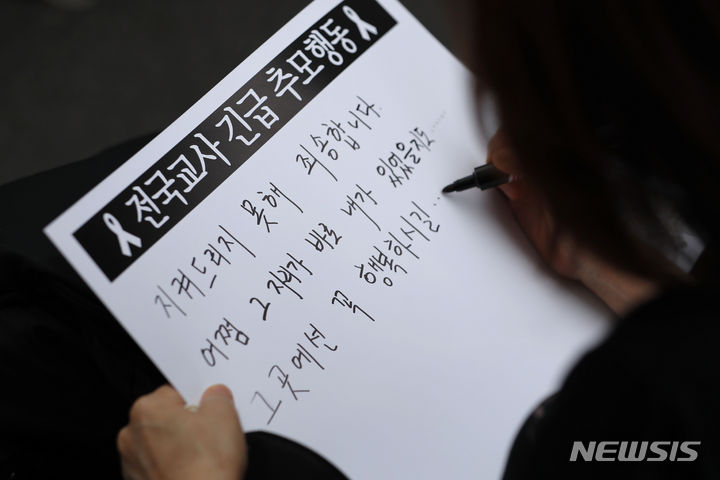 전국교사 긴급 추모행동
지켜드리지 못해 죄송합니다.
어쩜 그 자리가 바로 내가 있었을지도......
그 곳에선 꼭 행복하시길...
NEWSIS